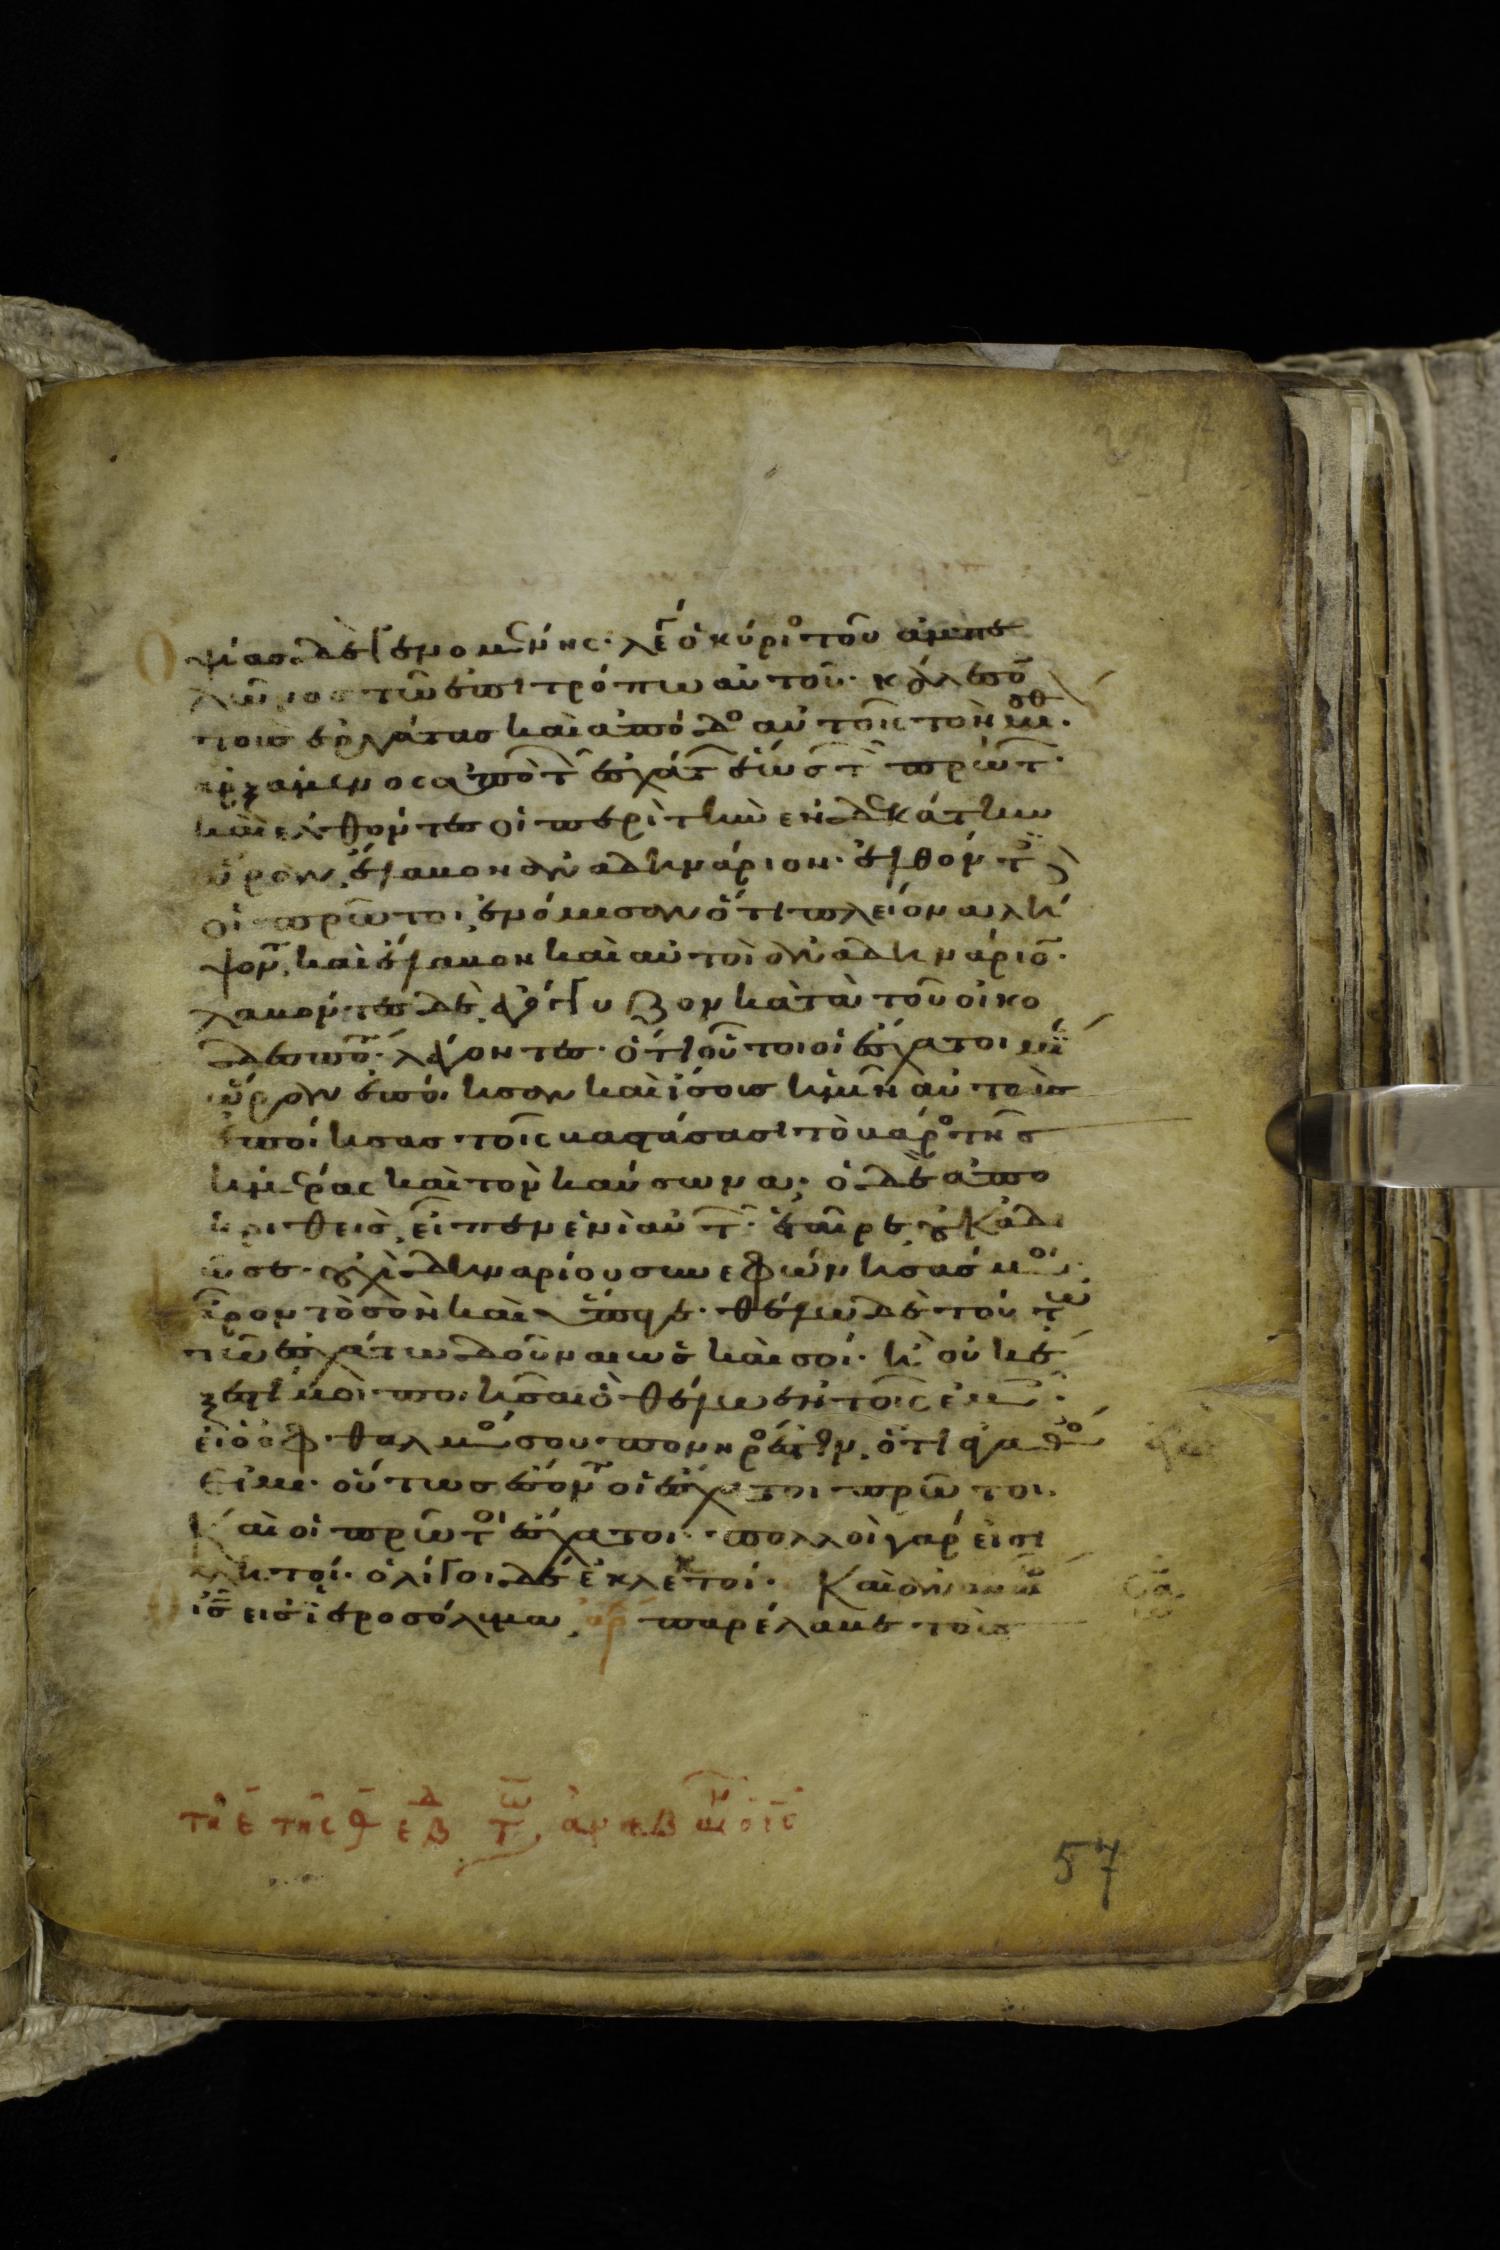 Ὀψίας δὲ γενομένης· λέγ ὁ κύριο τοῦ ἀμπε
λῶνος τῶ ἐπιτρόπω αὐτοῦ· κάλεσο
τοὺς ἐργάτας καὶ ἀπόδο αὐτοῖς τὸν μισθ·
ἀρξάμενος ἀπὸ τ ἐσχάτ ἕως τ πρώτ·
καὶ ἐλθόντες οἱ περὶ τὴν ἐνδεκάτην
ὥραν, ἔλαβον ἀνὰ δηνάριον· ἐλθόντ δ
οἱ πρῶτοι, ἐνόμισαν ὅτι πλείονα λή
ψον, καὶ ἔλαβον καὶ αὐτοὶ ἀνὰ δηνάριο·
λαβόντες δὲ, ἐγόγγυζον κατὰ τοῦ οἰκο
δεσπο· λέγοντες· ὅτι οὗτοι οἱ ἔσχατοι μί
ὥραν ἐποίησαν καὶ ἴσους ἡμῖν αὐτοὺς
ἐποίησας τοῖς βαστάσασι τὸ βάρο τῆς
ἡμέρας καὶ τὸν καύσωνα· ὁ δὲ ἀπο
κριθεὶς, εἶπεν ἑνὶ αὐτ· ἑταῖρε, οὐκ ἀδι
κῶ σε· οὐχὶ δηναρίου συνεφώνησάς μοι·
ἆρον τὸ σὸν καὶ ὕπαγε· θέλω δὲ τούτω
τῶ ἐσχάτω δοῦναι ὡς καὶ σοί· ἢ οὐκ ἔ
ξεστί μοι ποιῆσαι ὃ θέλω ἐν τοῖς ἐμ·
εἰ ὁ ὀφθαλμό σου πονηρό ἐστιν, ὅτι ἐγὼ ἀγαθό
εἰμι· οὕτως ἔσον οἱ ἔσχατοι πρῶτοι·
Καὶ οἱ πρῶτοι ἔσχατοι· πολλοὶ γάρ εἰσι
κλητοί· ὀλίγοι δὲ ἐκλεκτοί· Καὶ ἀναβ
ὁ ις εἰς ἱεροσόλυμα, παρέλαβε τοὺς
57